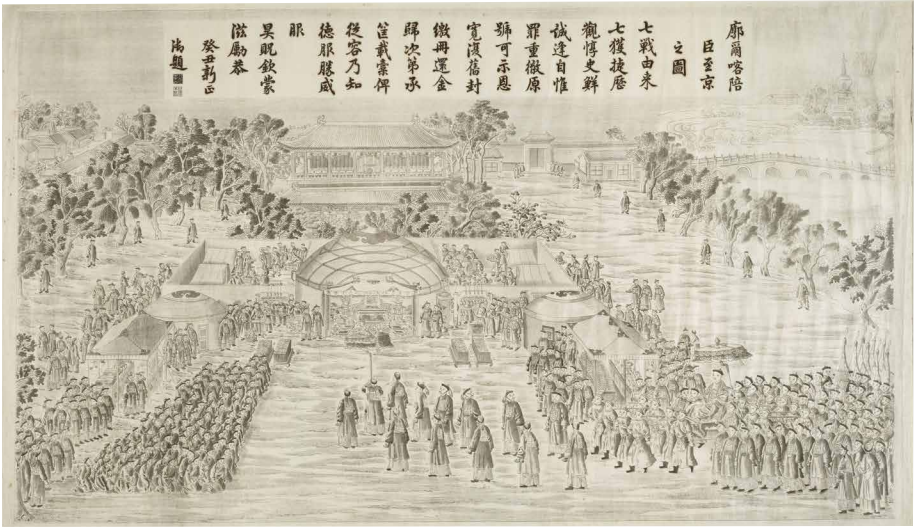 廓爾喀陪
臣至京
之圖
七戰由来
七獲捷歷
觀惇史鮮
誠逢自惟
罪重徹原
號可示恩
寬復舊封
繳冊還金
歸次第承
筐載橐俾
從容乃知
德服勝威
服
昊貺欽蒙
滋勵恭
癸丑新正
御題